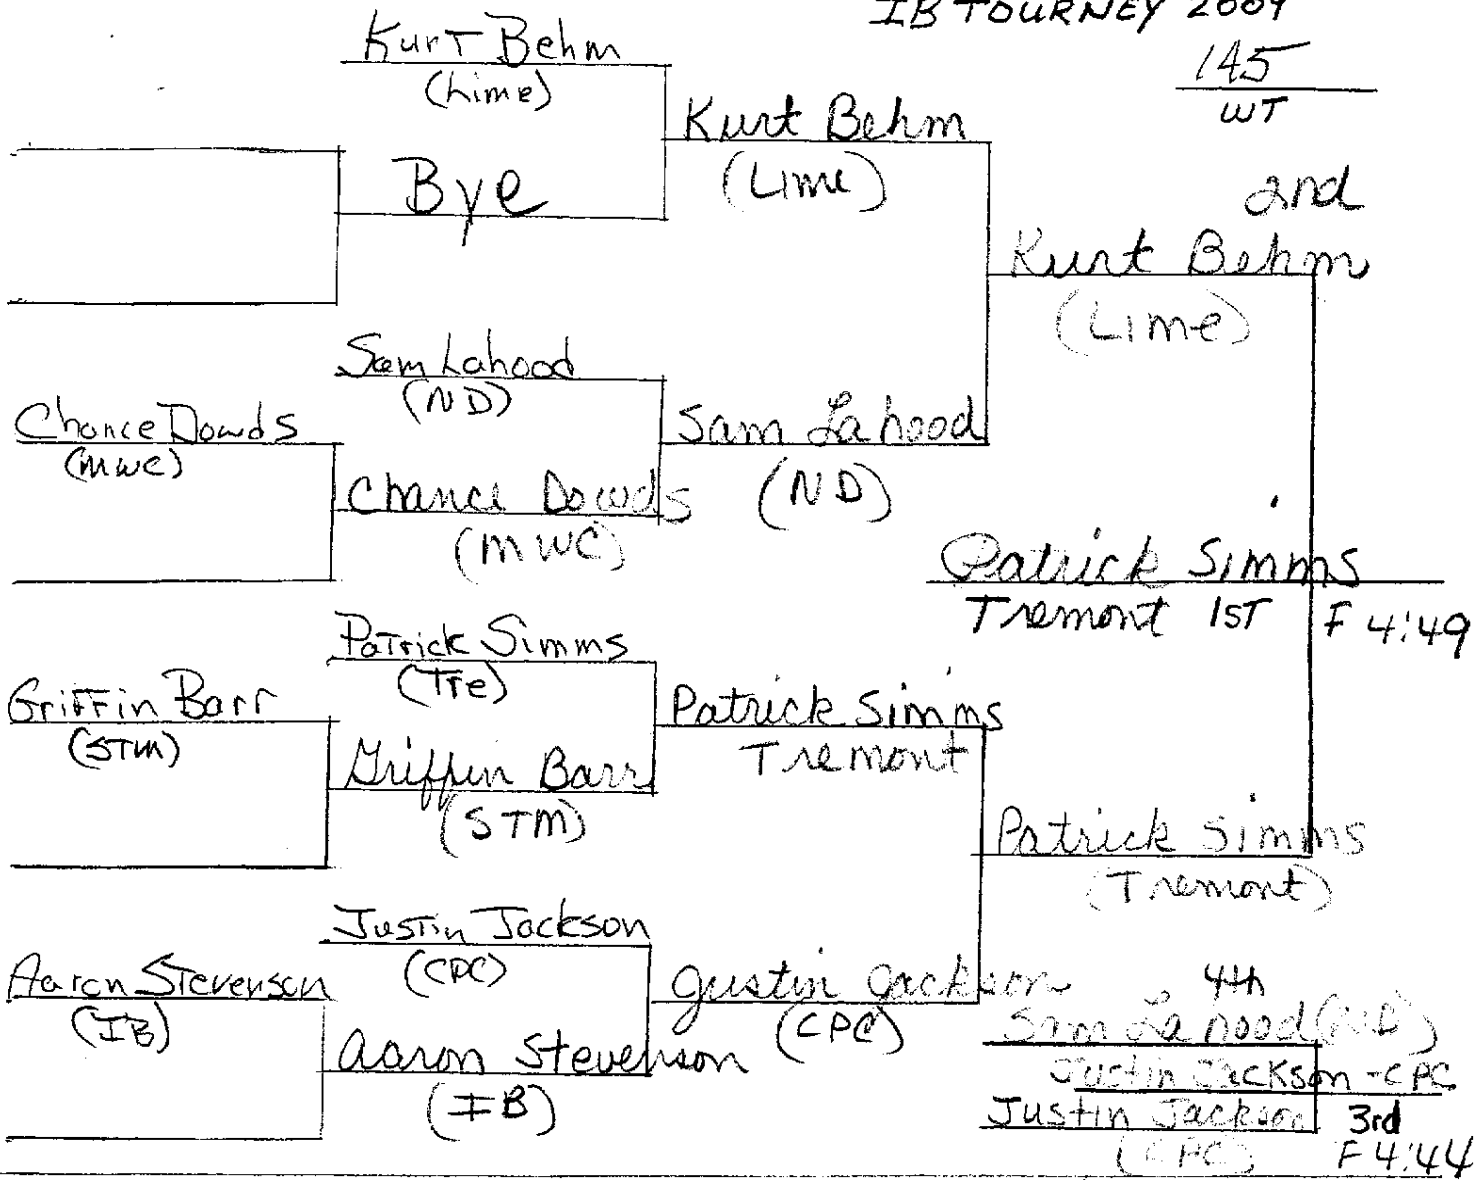 IB TOURNEY 2009
145
WT
Kurt Behm
(Lime)
Bye
Kurt Behm
(Lime)
2nd
Kurt Behm
(Lime)
Sam Lahood
(ND)
Chance Dowds
(MWC)
Chance Dowds
(MWC)
Sam Lahood
(ND)
Patrick Simms
Tremont 1ST F 4:49
Patrick Simms
(Tre)
Griffin Barr
(STM)
Griffin Barr
(STM)
Patrick Simms
Tremont
Patrick Simms
(Tremont)
Justin Jackson
(CPC)
Aaron Stevenson
(IB)
Aaron Stevenson
(IB)
Justin Jackson
(CPC)
4th
Sam Lahood (ND)
Justin Jackson - CPC
Justin Jackson 3rd
(CPC) F 4:44